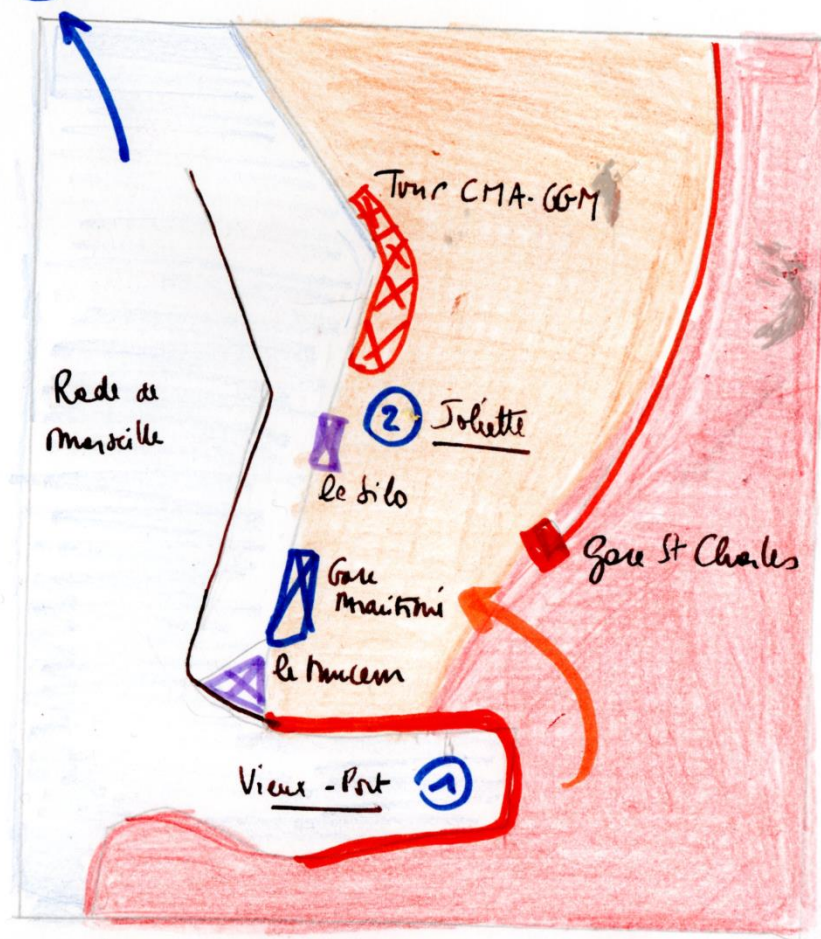 Tour CMA-CGM
Rade de
Marseille
2 Joliette
le Silo
Gare St Charles
Gare
Maritime
le Mucem
Vieux-Port 1